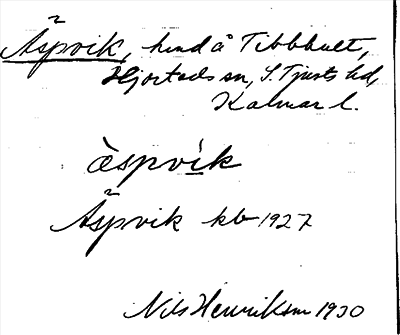 Äspvik, hmd å Tibbhult,
Hjorteds sn, S. Tjusts hd,
Kalmar l.
àspvík
Äspvik kb 1927
Nils Henrikson 1930